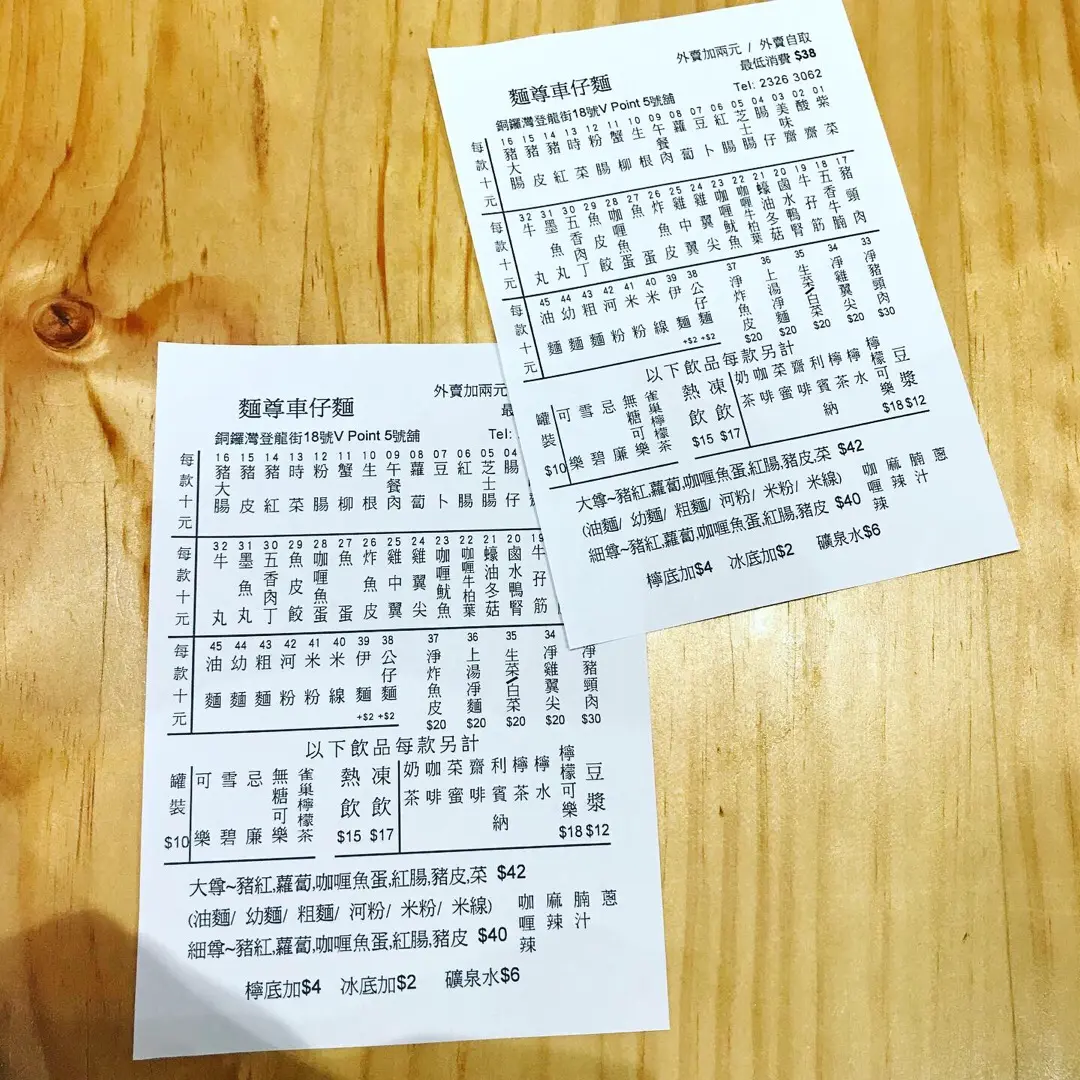 麵尊車仔麵
外賣加兩元 / 外賣自取
最低消費 $38
銅鑼灣登龍街18號V Point 5號舖
Tel: 2326 3062
每款十元
01 紫菜
02 酸齋
03 美味齋
04 腸仔
05 芝士腸
06 紅腸
07 豆卜
08 蘿蔔
09 午餐肉
10 生根
11 蟹柳
12 粉腸
13 時菜
14 豬紅
15 豬皮
16 豬大腸
每款十元
17 豬頸肉
18 五香牛腩
19 牛孖筋
20 鹵水鴨腎
21 蠔油冬菇
22 咖喱牛柏葉
23 咖喱魷魚
24 雞翼尖
25 雞中翼
26 炸魚皮
27 魚蛋
28 咖喱魚蛋
29 魚皮餃
30 五香肉丁
31 墨魚丸
32 牛丸
33 淨豬頸肉 $30
34 淨雞翼尖 $20
35 生菜/白菜 $20
36 上湯淨麵 $20
37 淨炸魚皮 $20
每款十元
38 公仔麵 +$2
39 伊麵 +$2
40 米線
41 米粉
42 河粉
43 粗麵
44 幼麵
45 油麵
以下飲品每款另計
豆漿 $12
檸檬可樂 $18
檸水
檸茶
利賓納
齋啡
菜蜜
咖啡
奶茶
凍飲 $17
熱飲 $15
雀巢檸檬茶
無糖可樂
忌廉
雪碧
可樂
罐裝 $10
大尊~豬紅,蘿蔔,咖喱魚蛋,紅腸,豬皮,菜 $42
(油麵/ 幼麵/ 粗麵/ 河粉/ 米粉/ 米線)
細尊~豬紅,蘿蔔,咖喱魚蛋,紅腸,豬皮 $40
咖喱辣
麻辣
腩汁
蔥
檸底加$4 冰底加$2 礦泉水$6
麵尊車仔麵
外賣加兩元
最
銅鑼灣登龍街18號V Point 5號舖
Tel:
每款十元
04 腸仔
05 芝士腸
06 紅腸
07 豆卜
08 蘿蔔
09 午餐肉
10 生根
11 蟹柳
12 粉腸
13 時菜
14 豬紅
15 豬皮
16 豬大腸
每款十元
19 牛孖筋
20 鹵水鴨腎
21 蠔油冬菇
22 咖喱牛柏葉
23 咖喱魷魚
24 雞翼尖
25 雞中翼
26 炸魚皮
27 魚蛋
28 咖喱魚蛋
29 魚皮餃
30 五香肉丁
31 墨魚丸
32 牛丸
淨豬頸肉 $30
34 淨雞翼尖 $20
35 生菜/白菜 $20
36 上湯淨麵 $20
37 淨炸魚皮 $20
每款十元
38 公仔麵 +$2
39 伊麵 +$2
40 米線
41 米粉
42 河粉
43 粗麵
44 幼麵
45 油麵
以下飲品每款另計
豆漿 $12
檸檬可樂 $18
檸水
檸茶
利賓納
齋啡
菜蜜
咖啡
奶茶
凍飲 $17
熱飲 $15
雀巢檸檬茶
無糖可樂
忌廉
雪碧
可樂
罐裝 $10
大尊~豬紅,蘿蔔,咖喱魚蛋,紅腸,豬皮,菜 $42
(油麵/ 幼麵/ 粗麵/ 河粉/ 米粉/ 米線)
細尊~豬紅,蘿蔔,咖喱魚蛋,紅腸,豬皮 $40
咖喱辣
麻辣
腩汁
蔥
檸底加$4 冰底加$2 礦泉水$6